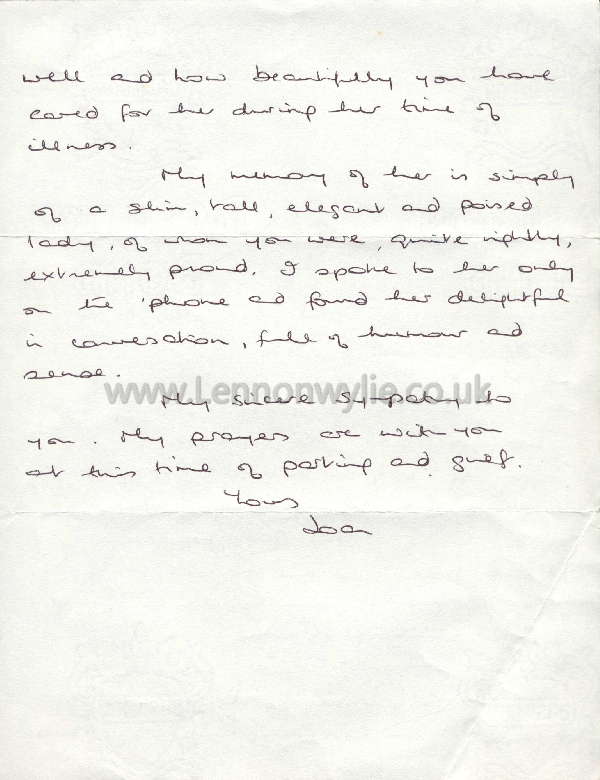 well and how beautifully you have
cared for her during her time of
illness.
My memory of her is simply
of a slim, tall, elegant and poised
lady, of whom you were, quite rightly,
extremely proud. I spoke to her only
on the 'phone and found her delightful
in conversation, full of humour and
sense.
www.Lennonwylie.co.uk
My sincere sympathy to
you. My prayers are with you
at this time of parting and grief.
Yours
Joan